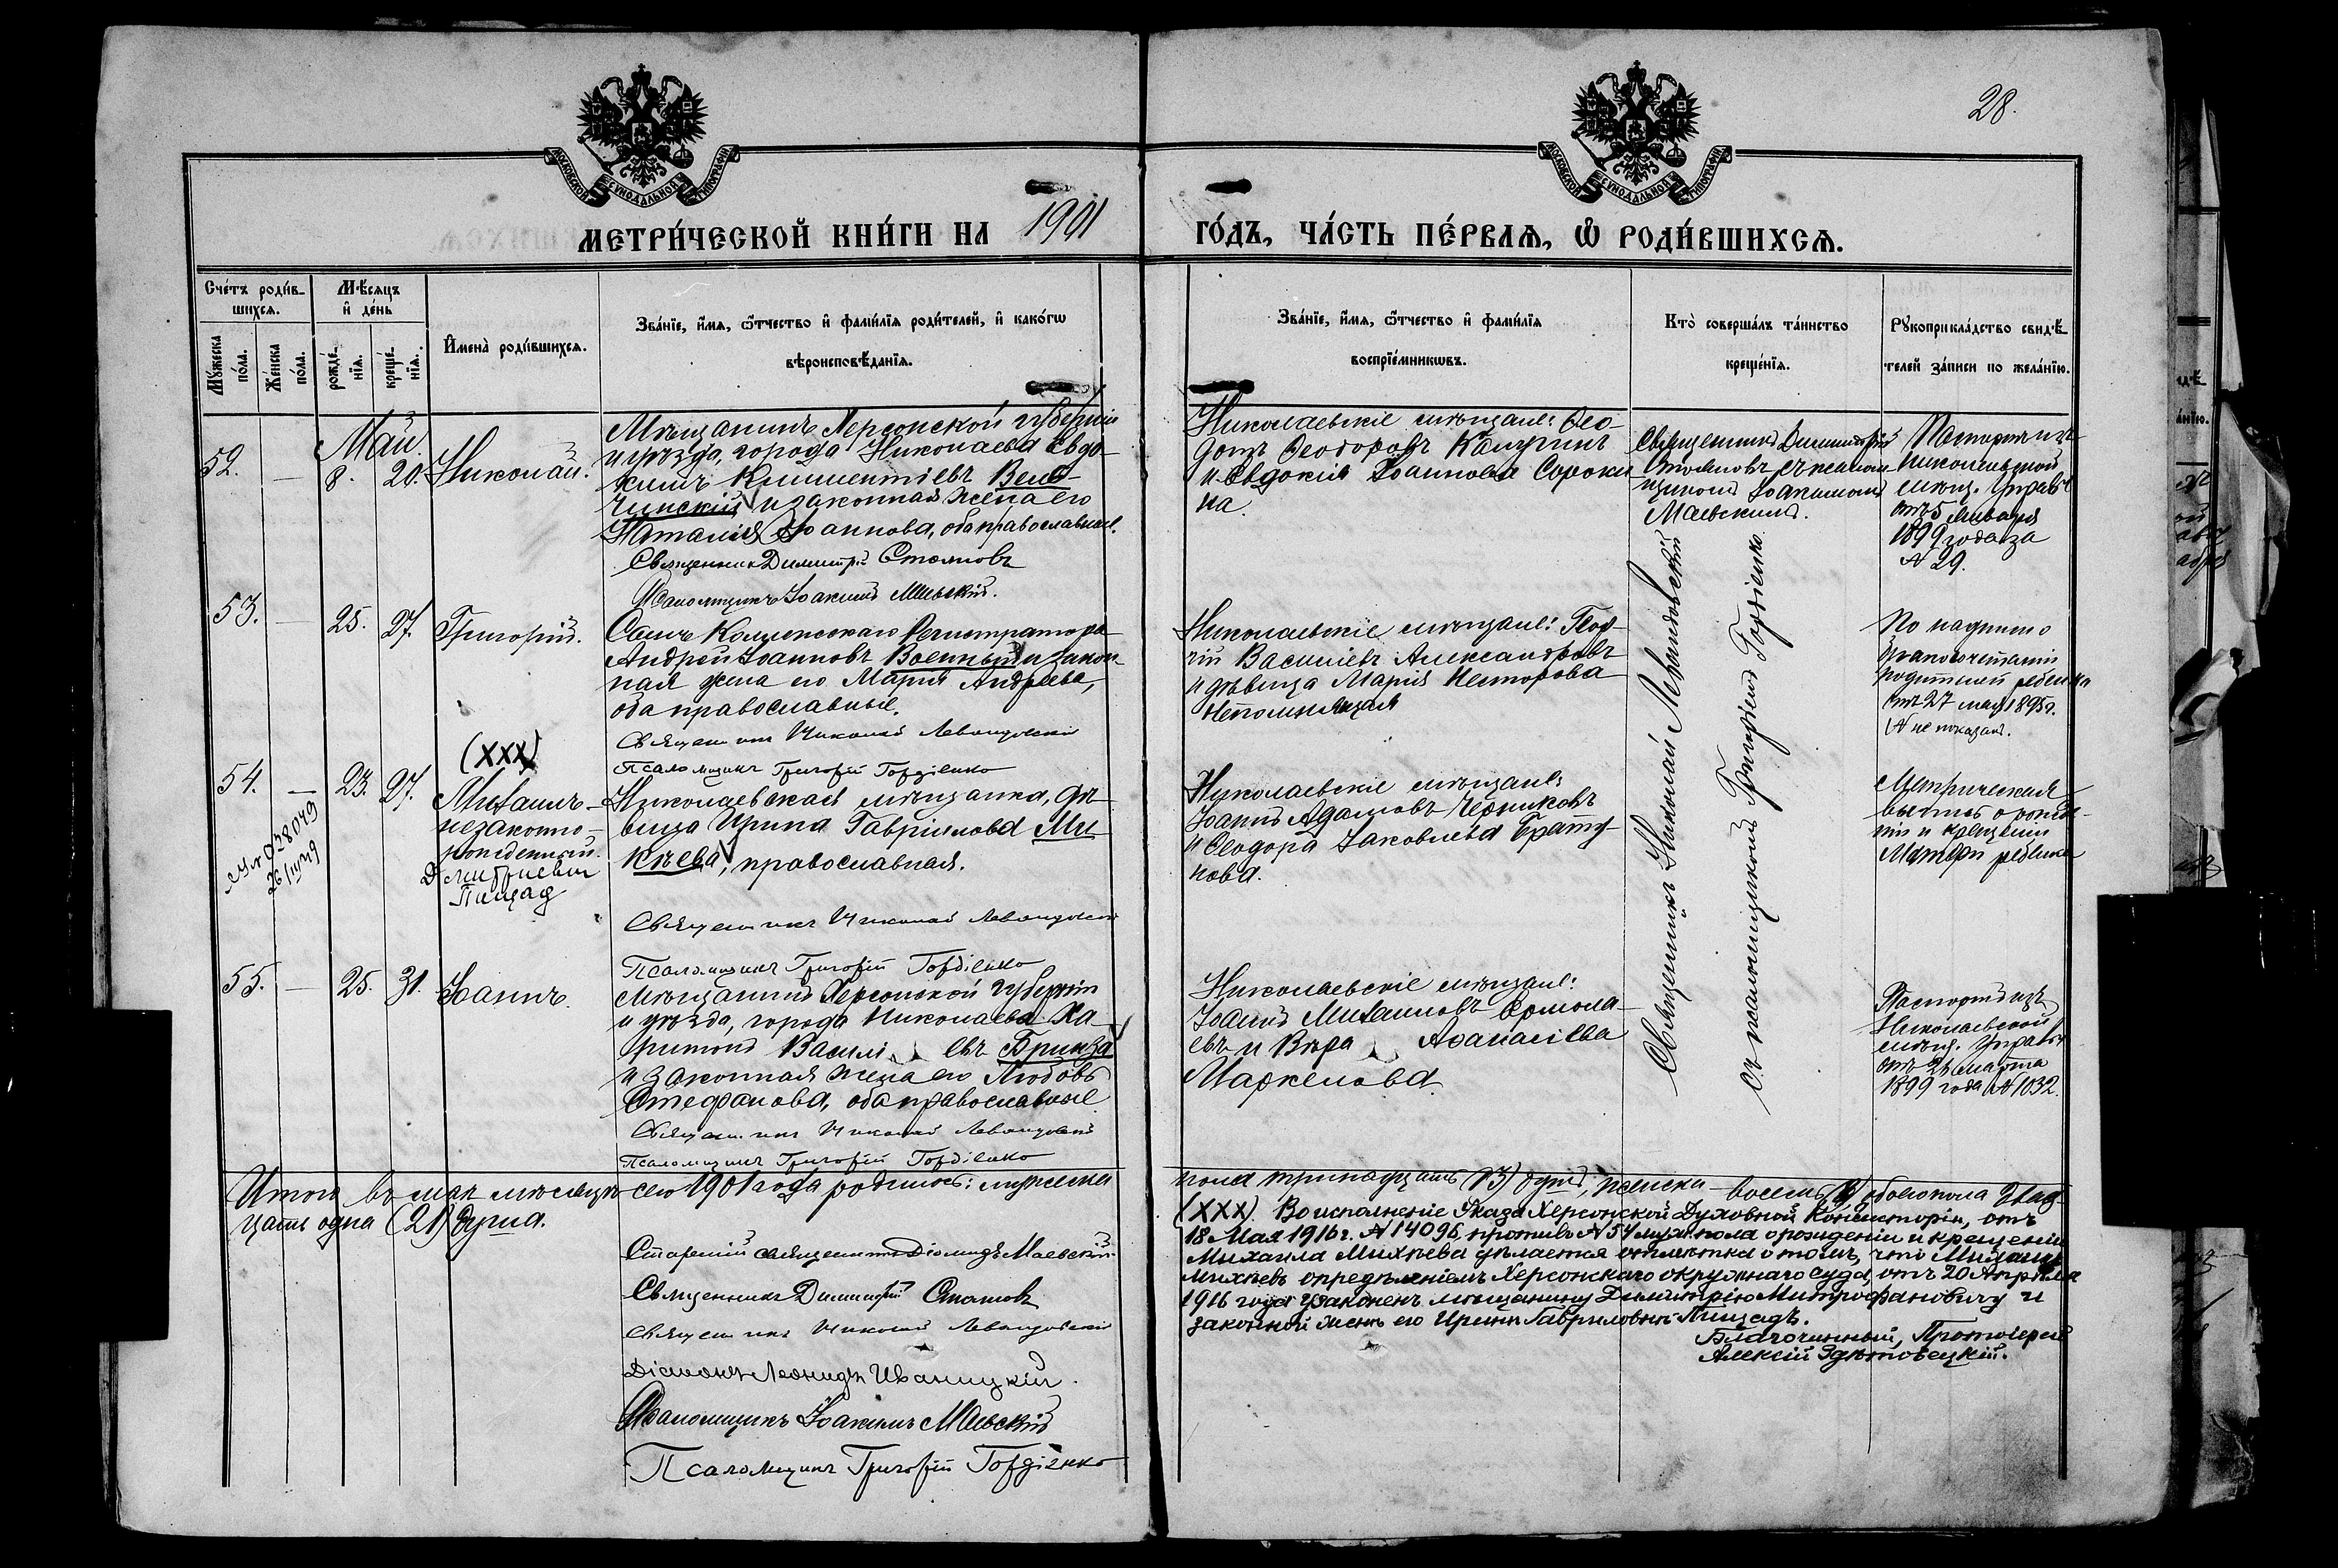 28.
МОСКОВСКОЙ СѴНОДАЛЬНОЙ ТИПОГРАФІИ
МОСКОВСКОЙ СѴНОДАЛЬНОЙ ТИПОГРАФІИ
МЕТРИ́ЧЕСКОЙ КНИ́ГИ НА 1901 ГО́ДЪ, ЧА́СТЬ ПЕ́РВАѦ, Ѡ҆ РОДИ́ВШИХСѦ.
Сче́тъ роди́в-
шихсѧ.
Мѹ́жеска по́ла.
Же́нска по́ла.
Мѣ́сѧцъ
и҆ де́нь
рожде́-нїѧ.
креще́-нїѧ.
И҆мена̀ роди́вшихсѧ.
Зва́нїе, и҆́мѧ, ѻ҆́тчество и҆ фамѝлїѧ роди́телей, и҆ како́гѡ
вѣроисповѣ́данїѧ.
Зва́нїе, и҆́мѧ, ѻ҆́тчество и҆ фамѝлїѧ
воспрїе́мникѡвъ.
Кто̀ соверша́лъ та́инство
креще́нїѧ.
Рѹкоприкла́дство свидѣ́-
телей за́писи по жела́нїю.
52.
—
Май
8.
20.
Николай.
Мѣщанинъ Херсонской губерніи
и уѣзда, города Николаева Евдо-
кимъ Климентіевъ Вел
чинскій и законная жена его
Наталія Іоаннова, оба православные.
Священникъ Димитрій Стоянов
Псаломщикъ Іоакимъ Маевскій.
Николаевскіе мѣщане: Ѳео-
дотъ Ѳеодоровъ Калугинъ
и Евдокія Іоаннова Сороки
на.
Священникъ Димитрій
Стояновъ съ псалом-
щикомъ Іоакимомъ
Маевскимъ.
Паспортъ изъ
Николаевской
мѣщ. Управы
отъ 5 Января
1899 года за
№ 29.
53.
—
25.
27.
Григорій.
Сынъ Коллежскаго Регистратора
Андрей Іоанновъ Военный и закон-
ная жена его Марія Андреева,
оба православные.
Священникъ Николай Левандовскій
Псаломщикъ Григорій Гордіенко
Николаевскіе мѣщане: Геор-
гій Василіевъ Александровъ
и дѣвица Марія Несторова
Непомнящая
По надписи о
бракосочетаніи
родителей ребенка
отъ 27 мая 1895 г.
№ не показанъ.
Священникъ Николай Левандовскій
съ псаломщикомъ Григоріемъ Гордіенко.
(ХХХ)
54.
—
23.
27.
Михаилъ-
незаконно-
рожденный.
Дмитриевич
Пищад
028049
26/III 49
Николаевская мѣщанка, дѣ-
вица Ирина Гавріилова Ми
хѣева, православная.
Священникъ Николай Левандовскій
Псаломщикъ Григорій Гордіенко
Николаевскіе мѣщане:
Іоаннъ Адамовъ Черниковъ
и Ѳеодора Іаковлева Брату-
нова.
Метрическая
выпись о рожде-
ніи и крещеніи
Матери ребенка
55.
—
25.
31.
Іоаннъ.
Мѣщанинъ Херсонской губерніи
и уѣзда, города Николаева Ха-
ритонъ Василіевъ Бринза
и законная жена его Любовь
Стефанова, оба православные
Священникъ Николай Левандовскій
Псаломщикъ Григорій Гордіенко
Николаевскіе мѣщане:
Іоаннъ Михаиловъ Ермола-
евъ и Вѣра Аѳанасіева
Маркелова.
Паспортъ изъ
Николаевской
мѣщ. Управы
отъ 21 марта
1899 года № 1032.
Итого въ маѣ мѣсяцѣ сего 1901 года родилось: мужеска пола тринадцать (13) душъ, женска – восемь (8), обоего пола двад-
цать одна (21) душа.
Старшій священникъ Діомидъ Маевскій.
Священникъ Димитрій Стоянов
Священникъ Николай Левандовскій
Діаконъ Леонидъ Иваницкій.
Псаломщикъ Іоакимъ Маевскій
Псаломщикъ Григорій Гордіенко
(ХХХ). Во исполненіе Указа Херсонской Духовной Консисторіи, отъ
18 Мая 1916 г. № 14096, противъ № 54 муж. пола о рожденіи и крещеніи
Михаила Михѣева дѣлается отмѣтка о томъ, что Михаилъ
Михѣевъ опредѣленіемъ Херсонскаго окружнаго суда, отъ 20 Апрѣля
1916 года узаконенъ мѣщанину Димитрію Митрофановичу и
законной женѣ его Иринѣ Гавриловнѣ Пищадъ.
Благочинный, Протоіерей
Алексій Здѣтовецкій.